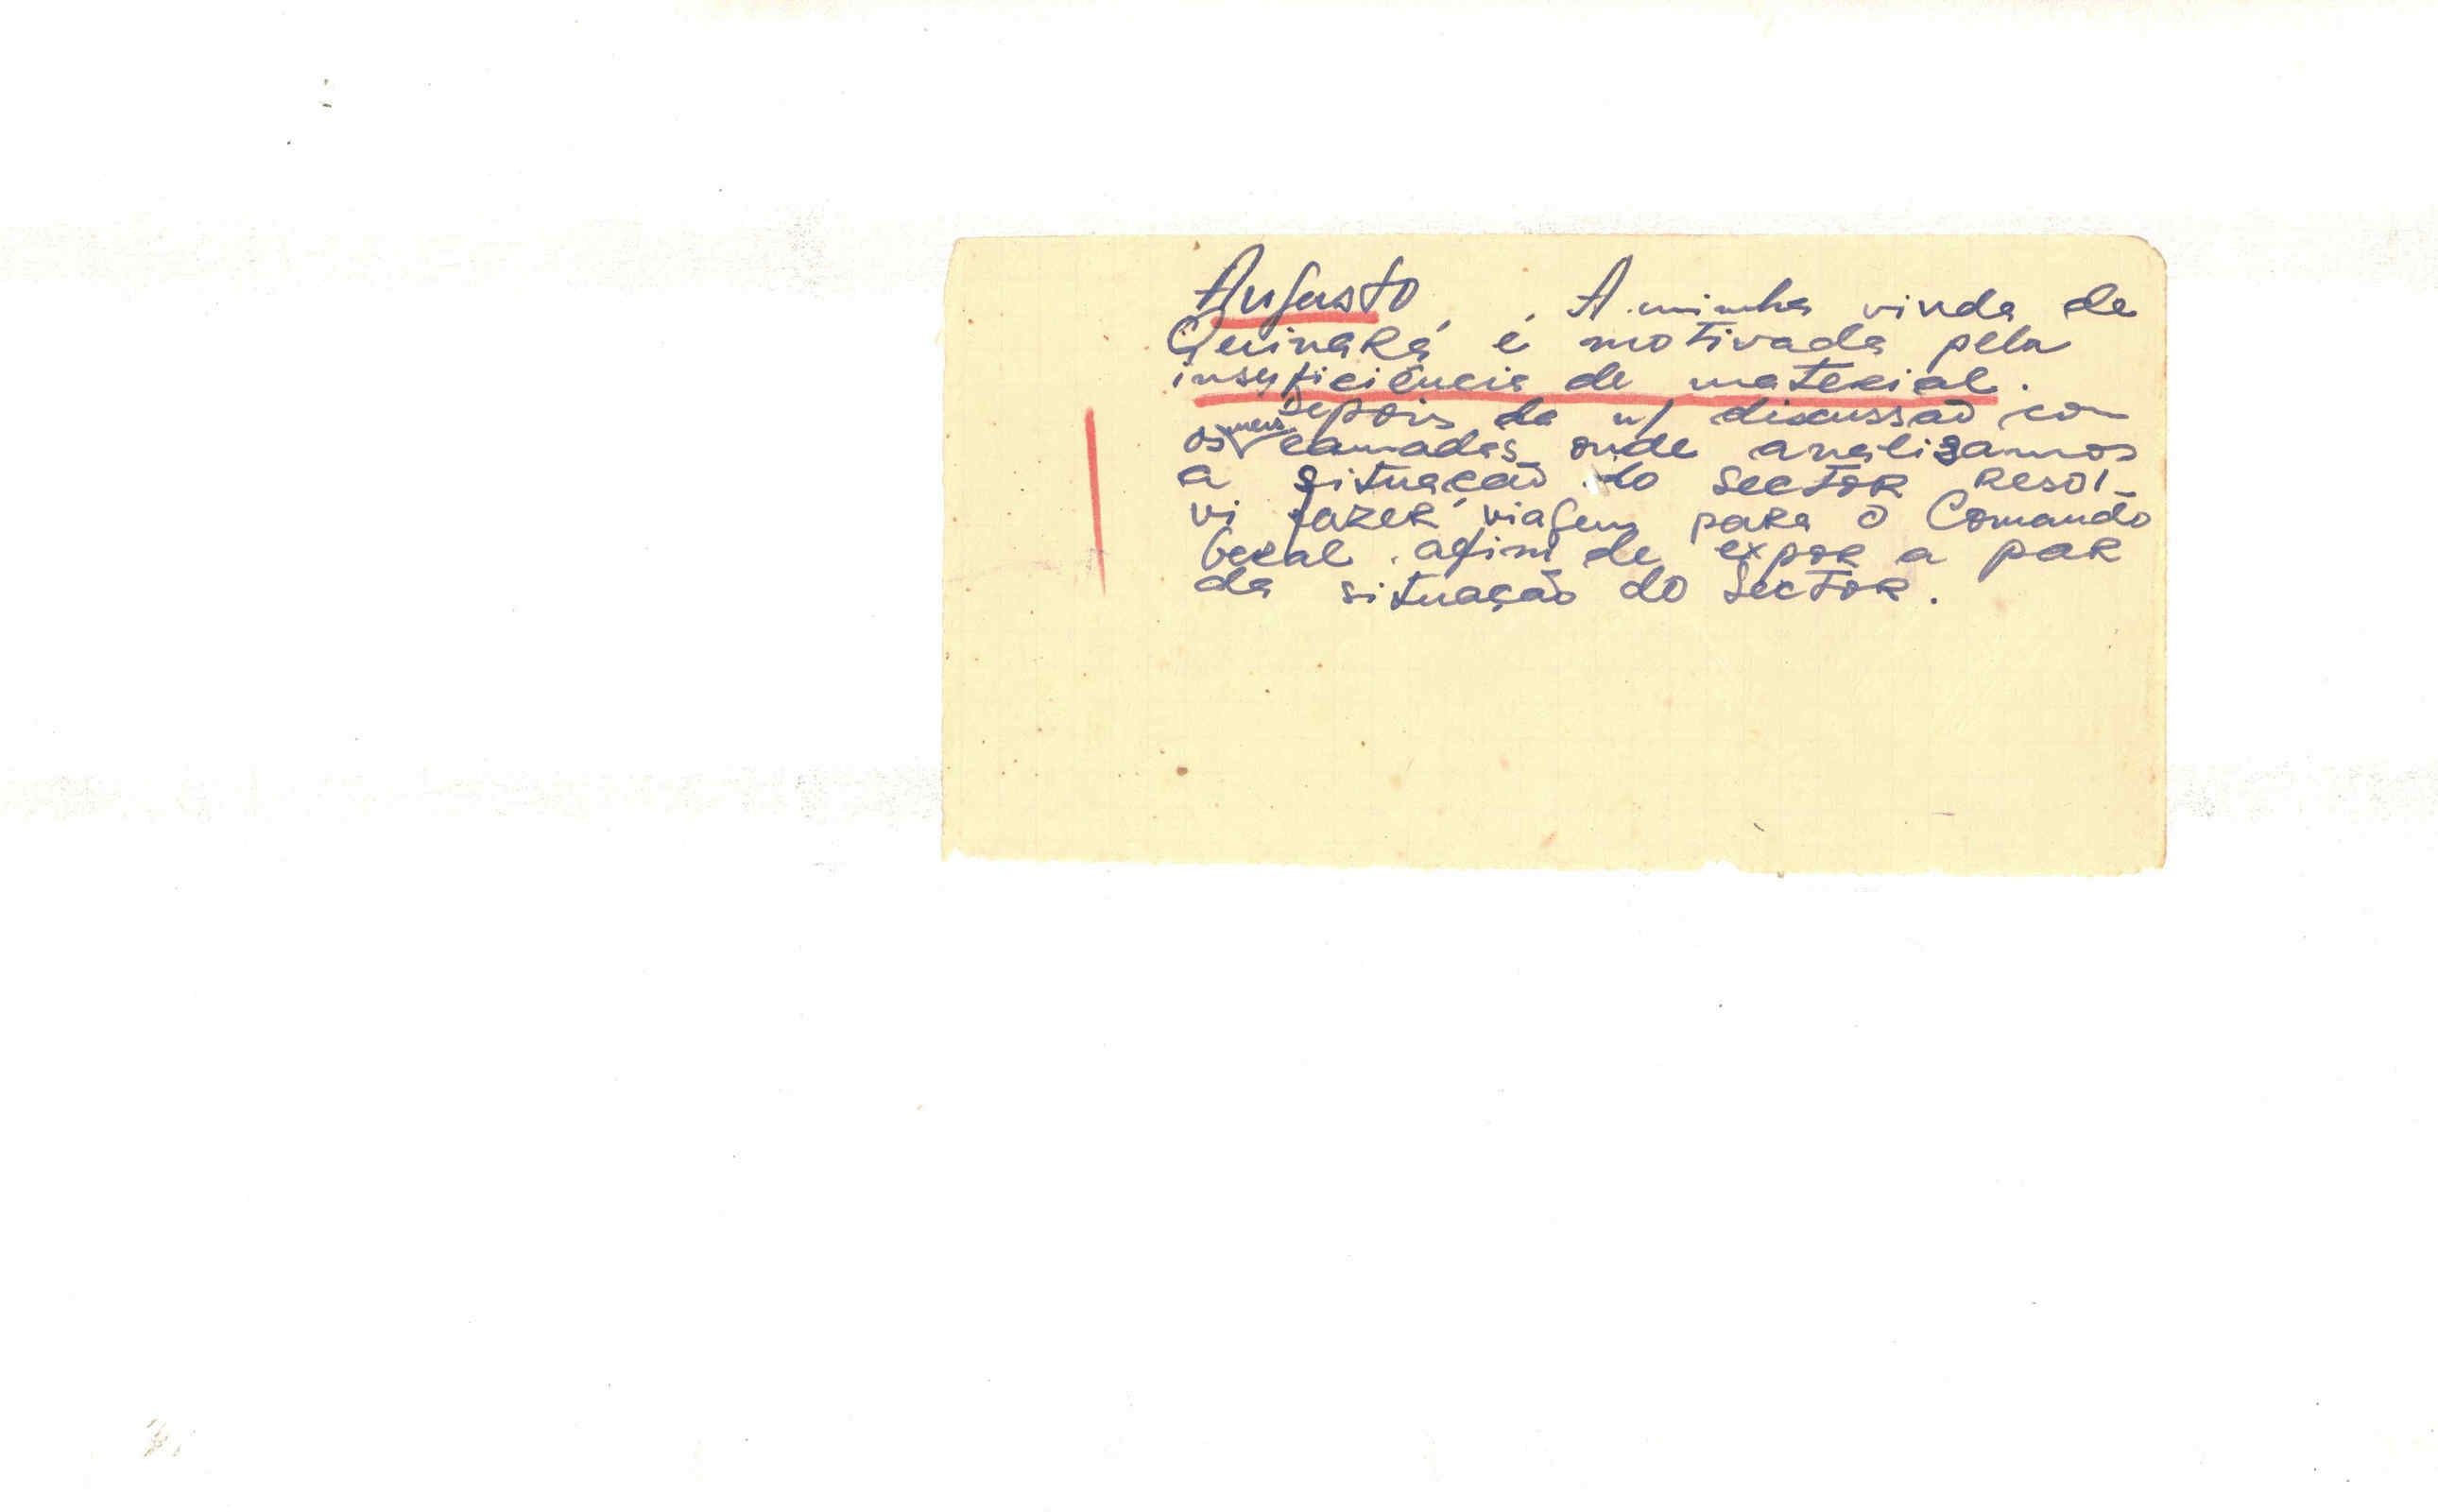 Augusto, A minha vinda de
Quinará é motivada pela
insuficiência de material.
Depois da n/ discussão com
os meus camadas onde analisamos
a situação do Sector resol-
vi fazer viagem para o Comando
Geral. afim de expor a par
da situação do Sector.